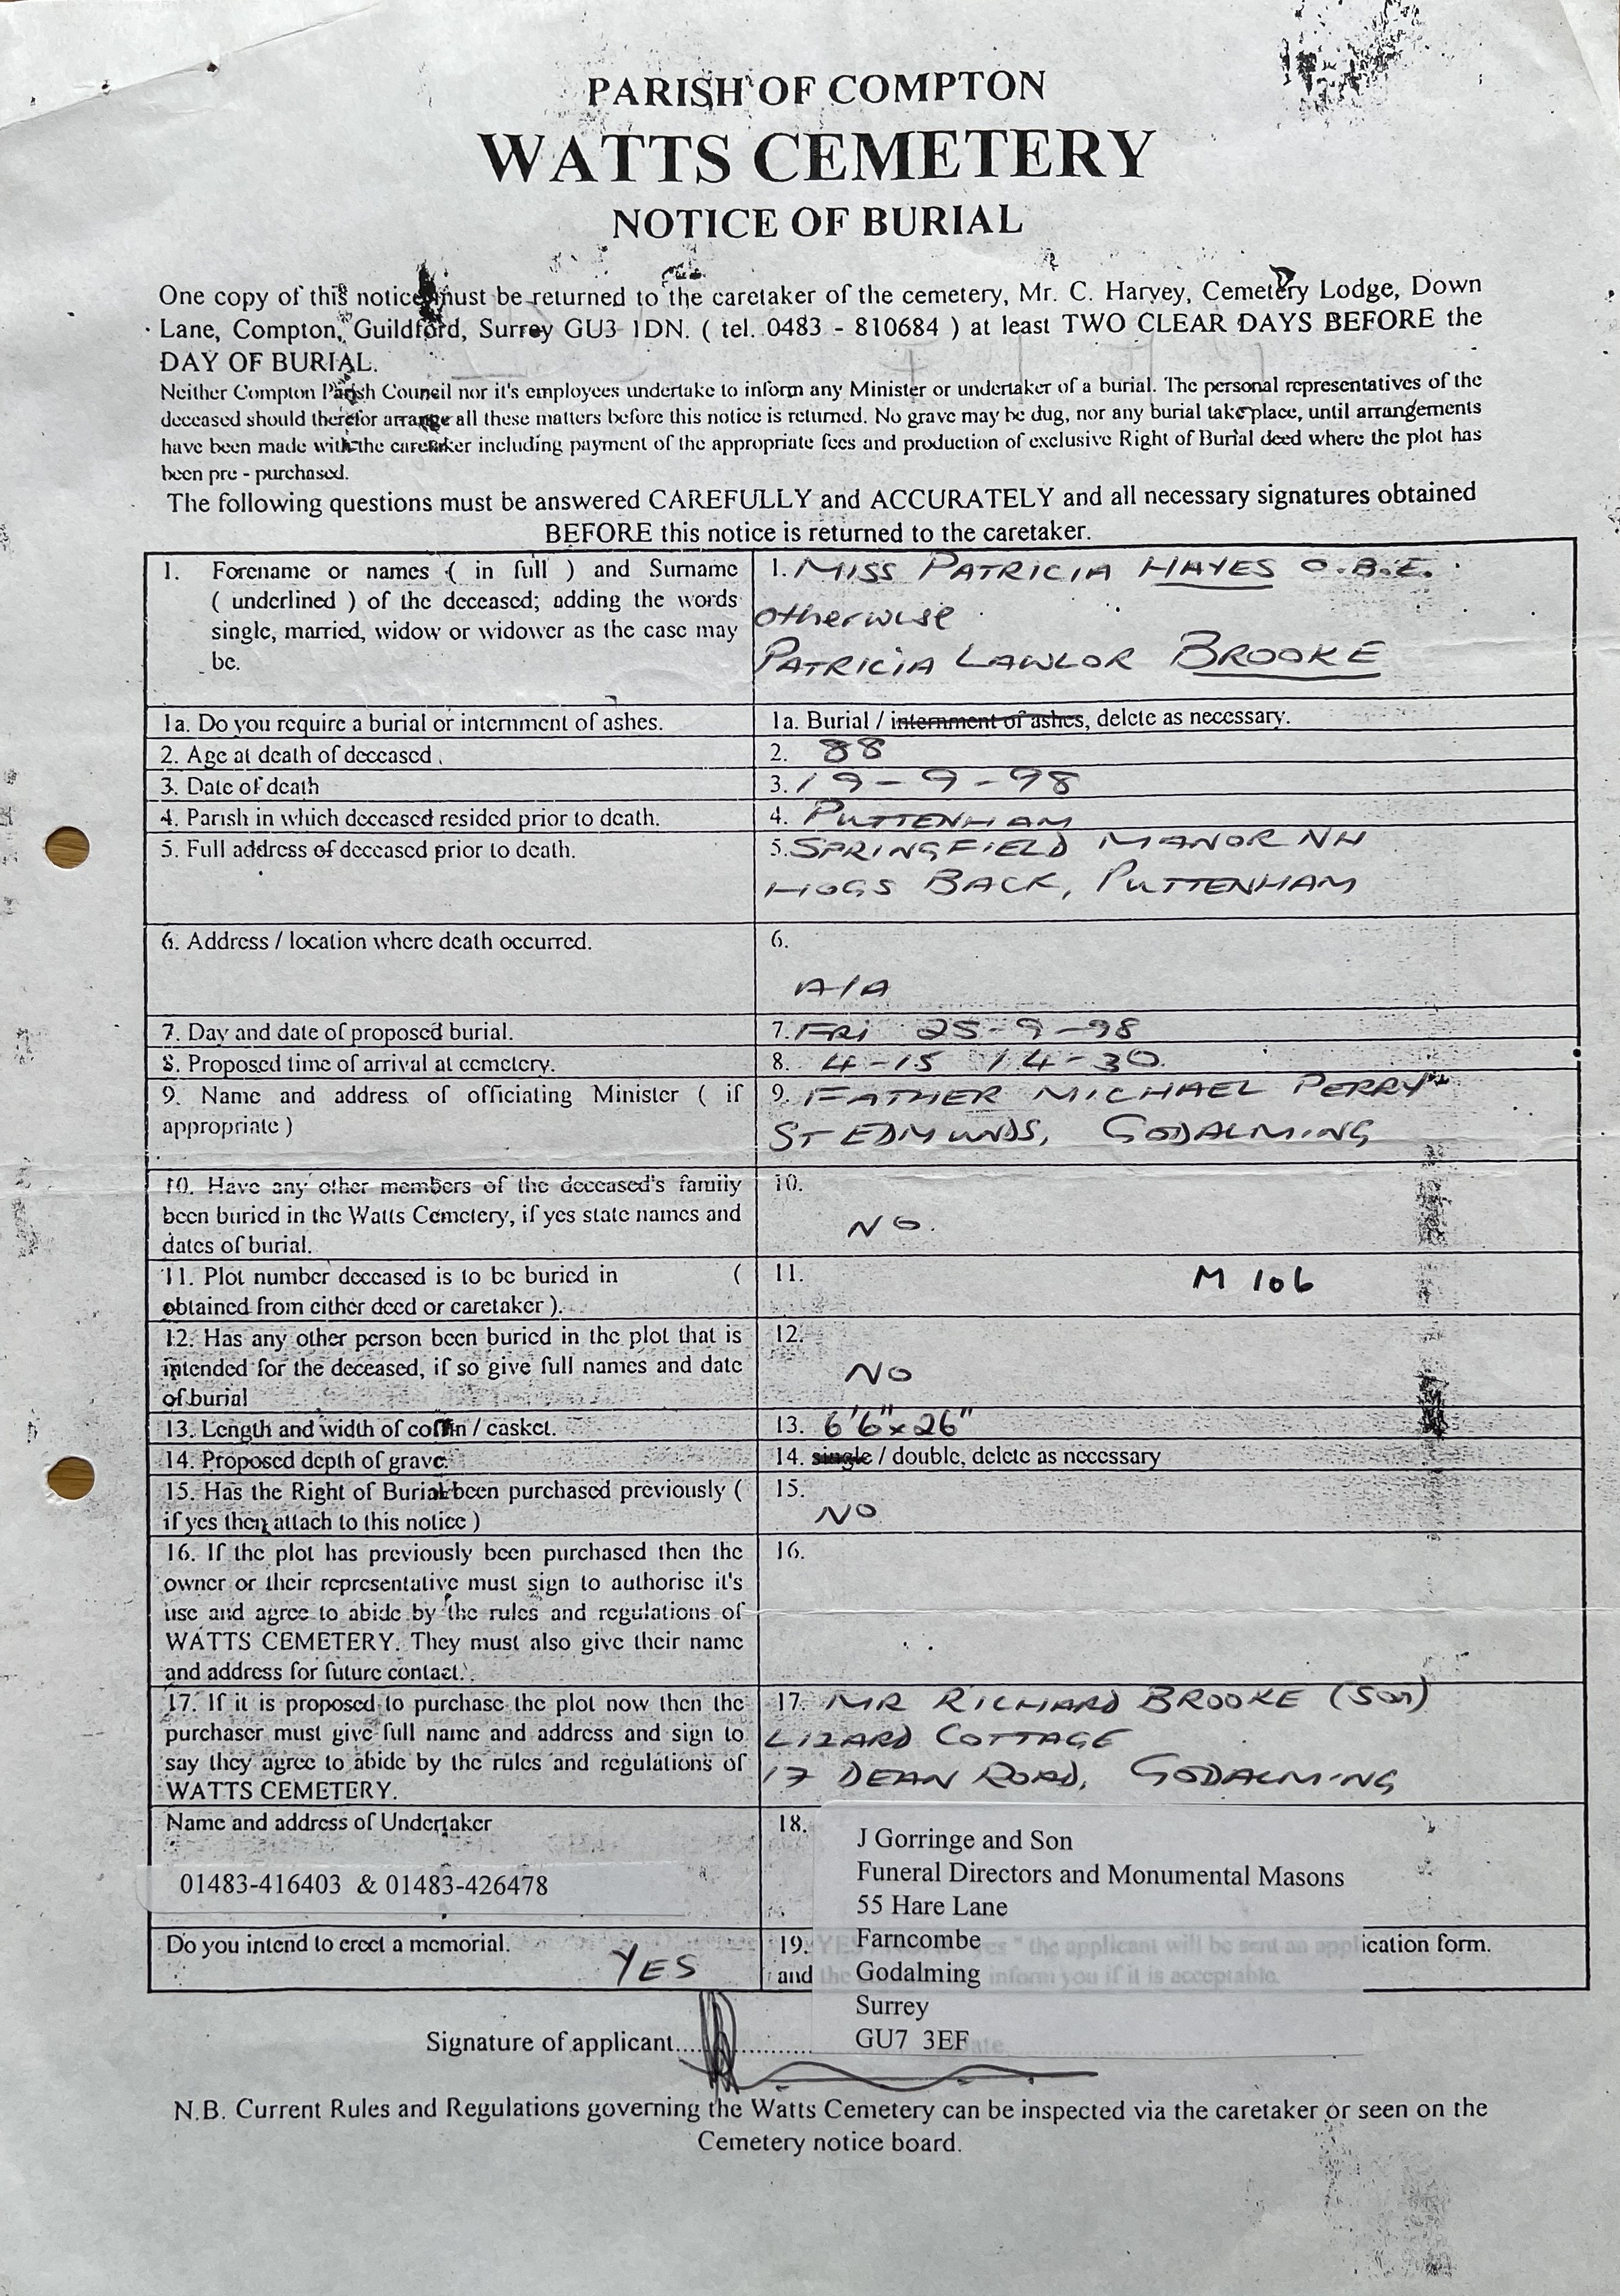 PARISH OF COMPTON
WATTS CEMETERY
NOTICE OF BURIAL
One copy of this notice must be returned to the caretaker of the cemetery, Mr. C. Harvey, Cemetery Lodge, Down
Lane, Compton, Guildford, Surrey GU3 1DN. ( tel. 0483 - 810684 ) at least TWO CLEAR DAYS BEFORE the
DAY OF BURIAL.
Neither Compton Parish Council nor it's employees undertake to inform any Minister or undertaker of a burial. The personal representatives of the
deceased should therefor arrange all these matters before this notice is returned. No grave may be dug, nor any burial take place, until arrangements
have been made with the caretaker including payment of the appropriate fees and production of exclusive Right of Burial deed where the plot has
been pre - purchased.
The following questions must be answered CAREFULLY and ACCURATELY and all necessary signatures obtained
BEFORE this notice is returned to the caretaker.
1. Forename or names ( in full ) and Surname
( underlined ) of the deceased; adding the words
single, married, widow or widower as the case may
be.
1. MISS PATRICIA HAYES O.B.E.
otherwise
PATRICIA LAWLOR BROOKE
1a. Do you require a burial or internment of ashes.
1a. Burial / internment of ashes, delete as necessary.
2. Age at death of deceased.
2. 88
3. Date of death
3. 19-9-98
4. Parish in which deceased resided prior to death.
4. PUTTENHAM
5. Full address of deceased prior to death.
5. SPRINGFIELD MANOR NH
HOGS BACK, PUTTENHAM
6. Address / location where death occurred.
6.
A/A
7. Day and date of proposed burial.
7. FRI 25-9-98
8. Proposed time of arrival at cemetery.
8. 4-15 / 4-30.
9. Name and address of officiating Minister ( if
appropriate )
9. FATHER MICHAEL PERRY
ST EDMUNDS, GODALMING
10. Have any other members of the deceased's family
been buried in the Watts Cemetery, if yes state names and
dates of burial.
10.
NO.
11. Plot number deceased is to be buried in (
obtained from either deed or caretaker ).
11. M 106
12. Has any other person been buried in the plot that is
intended for the deceased, if so give full names and date
of burial
12.
NO
13. Length and width of coffin / casket.
13. 6'6" x 26"
14. Proposed depth of grave.
14. single / double, delete as necessary
15. Has the Right of Burial been purchased previously (
if yes then attach to this notice )
15.
NO
16. If the plot has previously been purchased then the
owner or their representative must sign to authorise it's
use and agree to abide by the rules and regulations of
WATTS CEMETERY. They must also give their name
and address for future contact.
16.
17. If it is proposed to purchase the plot now then the
purchaser must give full name and address and sign to
say they agree to abide by the rules and regulations of
WATTS CEMETERY.
17. MR RICHARD BROOKE (SON)
LIZARD COTTAGE
17 DEAN ROAD, GODALMING
Name and address of Undertaker
01483-416403 & 01483-426478
18.
J Gorringe and Son
Funeral Directors and Monumental Masons
55 Hare Lane
Farncombe
Godalming
Surrey
GU7 3EF
Do you intend to erect a memorial.
YES
19. " the applicant will be sent an application form.
and the inform you if it is acceptable.
Signature of applicant
N.B. Current Rules and Regulations governing the Watts Cemetery can be inspected via the caretaker or seen on the
Cemetery notice board.